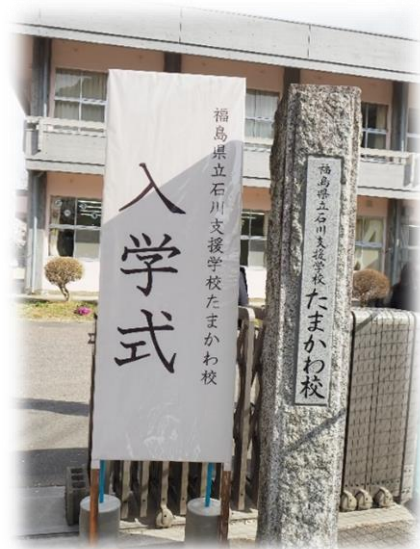 福島県立石川支援学校たまかわ校
入学式
福島県立石川支援学校
たまかわ校